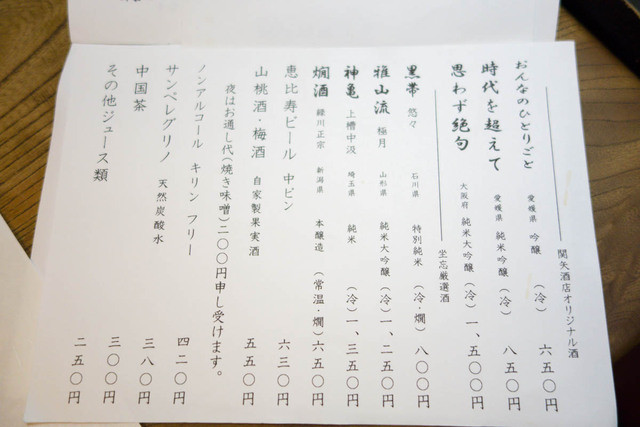 関矢酒店オリジナル酒
おんなのひとりごと 愛媛県 吟醸 (冷) 六五〇円
時代を超えて 愛媛県 純米吟醸 (冷) 八五〇円
思わず絶句 大阪府 純米大吟醸 (冷) 一、五〇〇円
坐忘厳選酒
黒帯 悠々 石川県 特別純米 (冷・燗) 八〇〇円
雅山流 極月 山形県 純米大吟醸 (冷) 一、二五〇円
神亀 上槽中汲 埼玉県 純米 (冷) 一、三五〇円
燗酒 緑川正宗 新潟県 本醸造 (常温・燗) 六五〇円
恵比寿ビール 中ビン 六三〇円
山桃酒・梅酒 自家製果実酒 五五〇円
夜はお通し代(焼き味噌)二〇〇円申し受けます。
ノンアルコール キリン フリー 四二〇円
サンペレグリノ 天然炭酸水 三八〇円
中国茶 三〇〇円
その他ジュース類 二五〇円